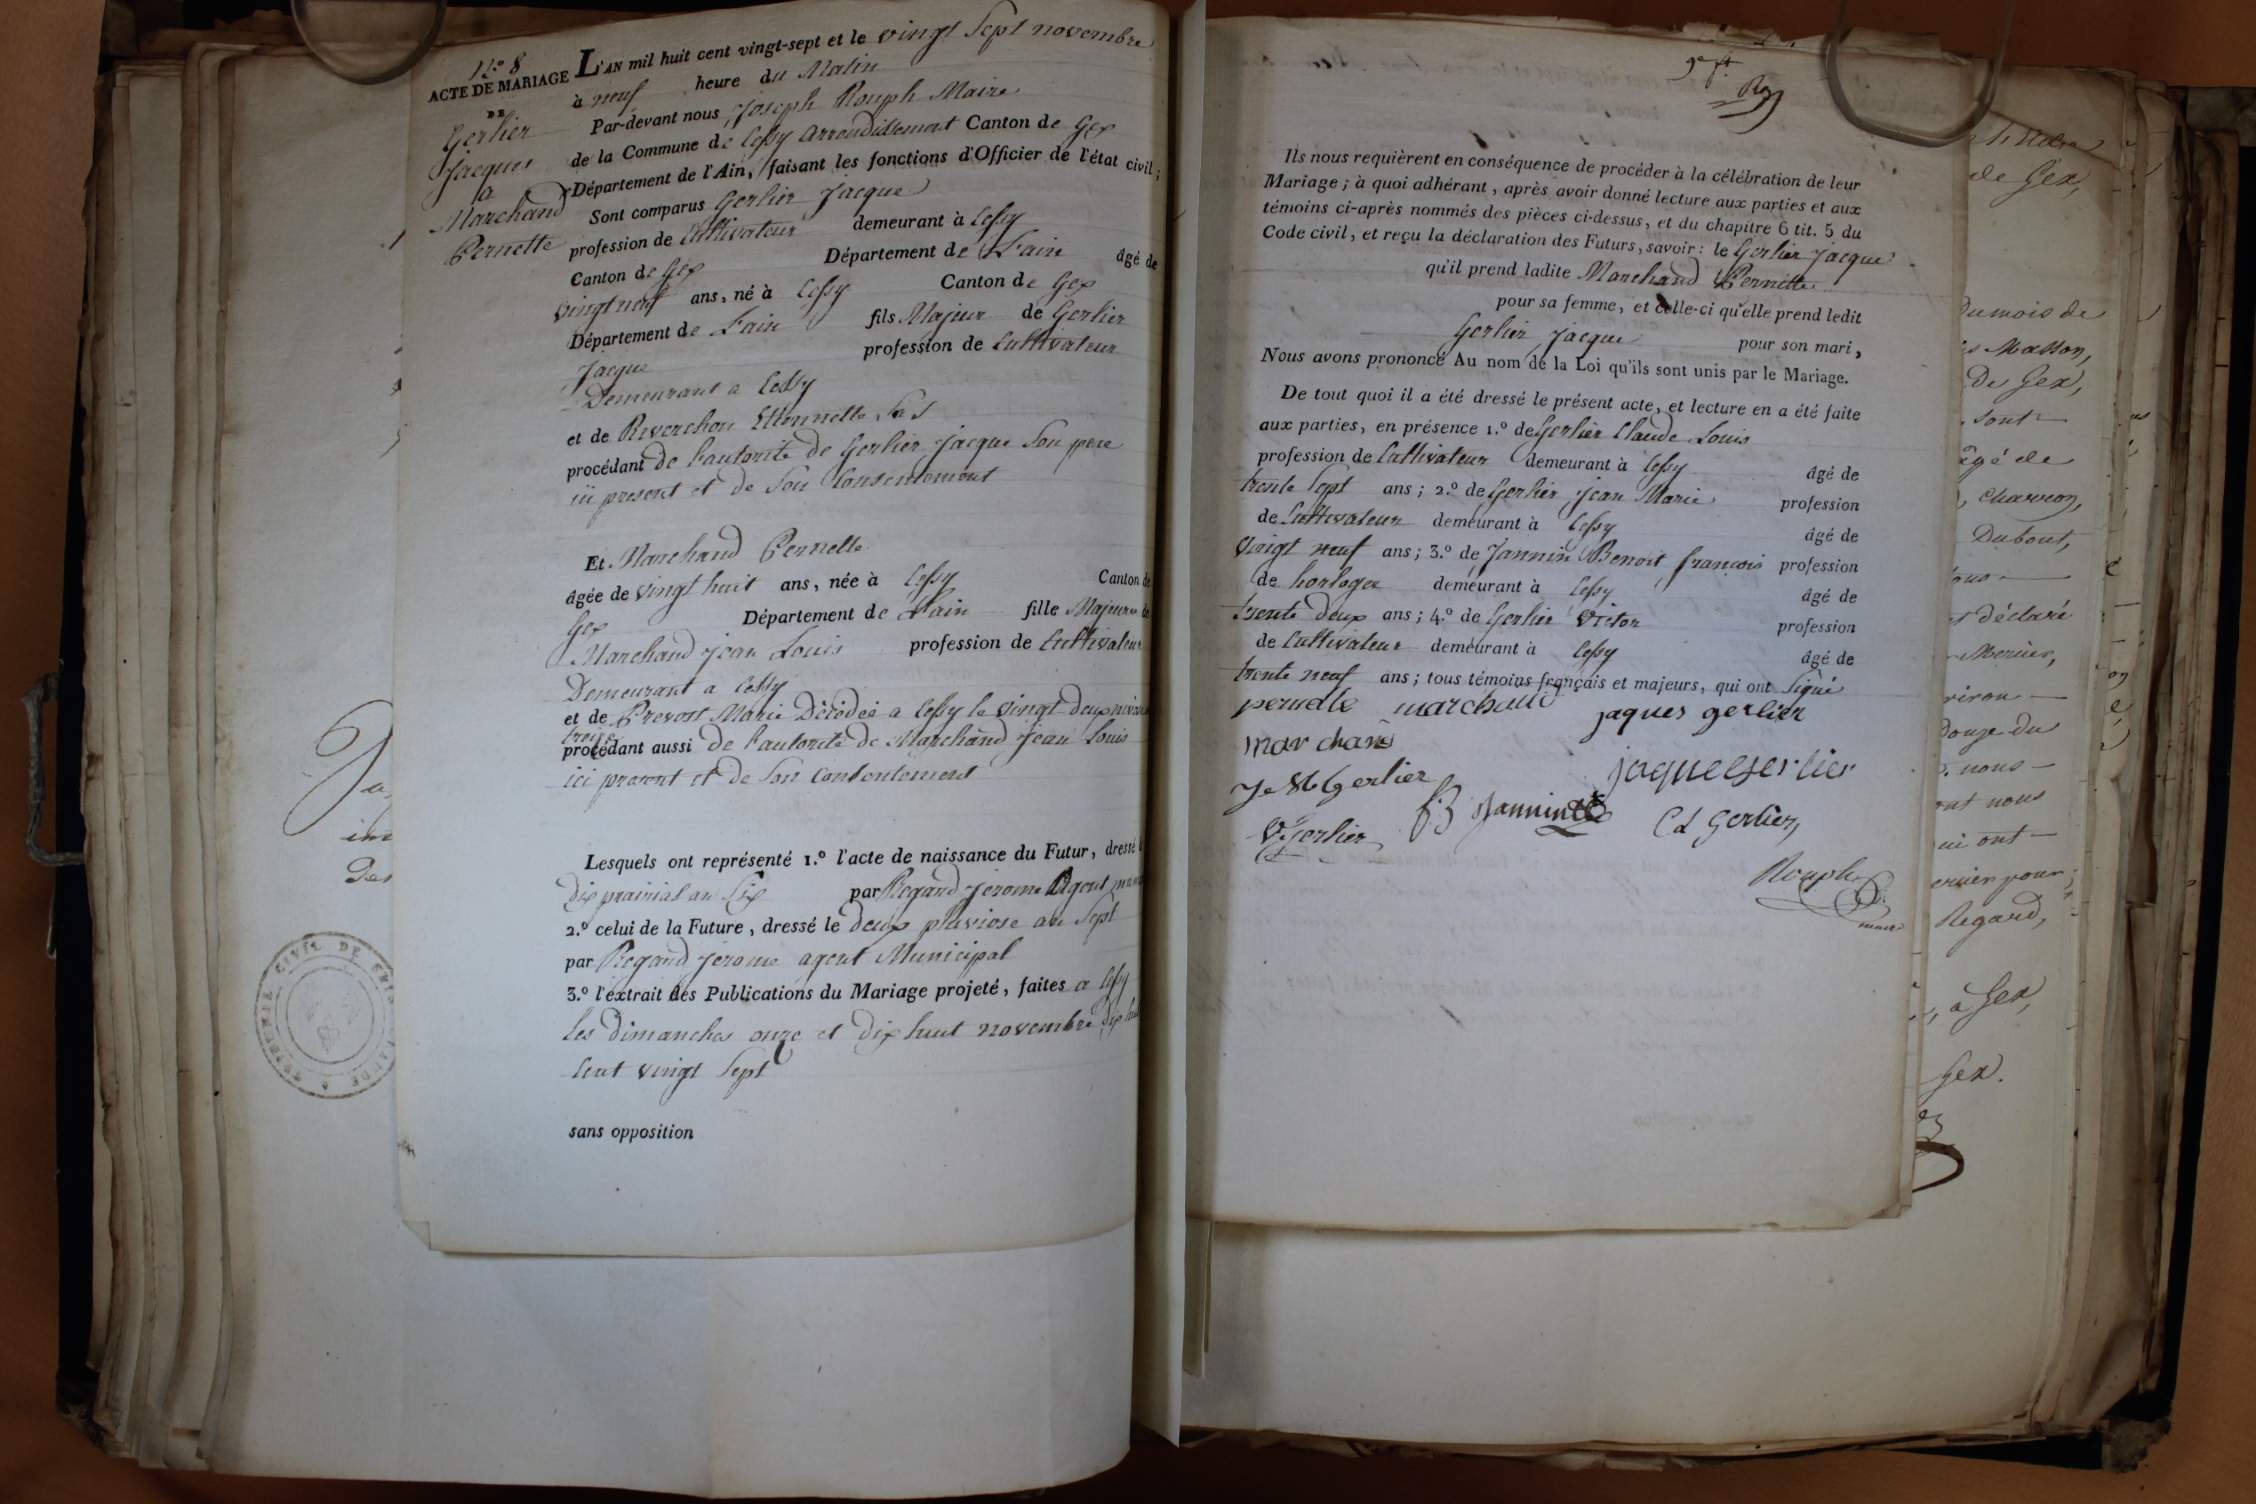 N.o 8
ACTE DE MARIAGE
DE
Gerlier
Jacques
a
Marchand
Pernette
L'AN mil huit cent vingt-sept et le vingt Sept novembre
à neuf heure du Matin
Par-devant nous Joseph Rouph Maire
de la Commune de Cessy Arrondissement Canton de Gex
Département de l'Ain, faisant les fonctions d'Officier de l'état civil ;
Sont comparus Gerlier Jacque
profession de Cultivateur demeurant à Cessy
Canton de Gex Département de L'ain âgé de
vingt neuf ans, né à Cessy Canton de Gex
Département de L'ain fils Majeur de Gerlier
Jacque profession de Cultivateur
Demeurant a Cessy
et de Reverchon Ettennette
procédant de L'autorité de Gerlier Jacque Son pere
ici present et de Son Consentement
Et Marchand Pernette
âgée de vingt huit ans, née à Cessy Canton de
Gex Département de L'ain fille Majeure de
Marchand Jean Louis profession de Cultivateur
Demeurant a Cessy
et de Prevost Marie Décédée a Cessy le vingt deux nivose
treize
procédant aussi de L'autorité de Marchand Jean Louis
ici present et de Son Consentement
Lesquels ont représenté 1.º l'acte de naissance du Futur, dressé
Dix prairial an Six par Regard Jerome Agent
2.º celui de la Future, dressé le deux pluviose an Sept
par Regard Jerome agent Municipal
3.º l'extrait des Publications du Mariage projeté, faites a Cessy
les dimanches onze et dix huit novembre dix huit
Cent vingt Sept
sans opposition
Ils nous requièrent en conséquence de procéder à la célébration de leur
Mariage ; à quoi adhérant, après avoir donné lecture aux parties et aux
témoins ci-après nommés des pièces ci-dessus, et du chapitre 6 tit. 5 du
Code civil, et reçu la déclaration des Futurs, savoir : le Gerlier Jacque
qu'il prend ladite Marchand Pernette
pour sa femme, et celle-ci qu'elle prend ledit
Gerlier Jacque pour son mari,
Nous avons prononcé Au nom de la Loi qu'ils sont unis par le Mariage.
De tout quoi il a été dressé le présent acte, et lecture en a été faite
aux parties, en présence 1.º de Gerlier Claude Louis
profession de Cultivateur demeurant à Cessy âgé de
trente Sept ans ; 2.º de Gerlier Jean Marie profession
de Cultivateur demeurant à Cessy âgé de
vingt neuf ans ; 3.º de Jannin Benoit françois profession
de horloger demeurant à Cessy âgé de
trente deux ans ; 4.º de Gerlier Victor profession
de Cultivateur demeurant à Cessy âgé de
trente neuf ans ; tous témoins français et majeurs, qui ont Signé
pernette marchand
jaques gerlier
marchand
jaque gerlier
Gerlier
Jannin
Cd Gerlier,
V. Gerlier
Rouph
maire
de Gex,
Dumois de
Masson,
De Gex,
sont
âgé de
charron,
Dubout,
déclaré
Mercier,
viron
douze du
nous
ont nous
ui ont
pour
Regard,
, à Gex,
Gex.